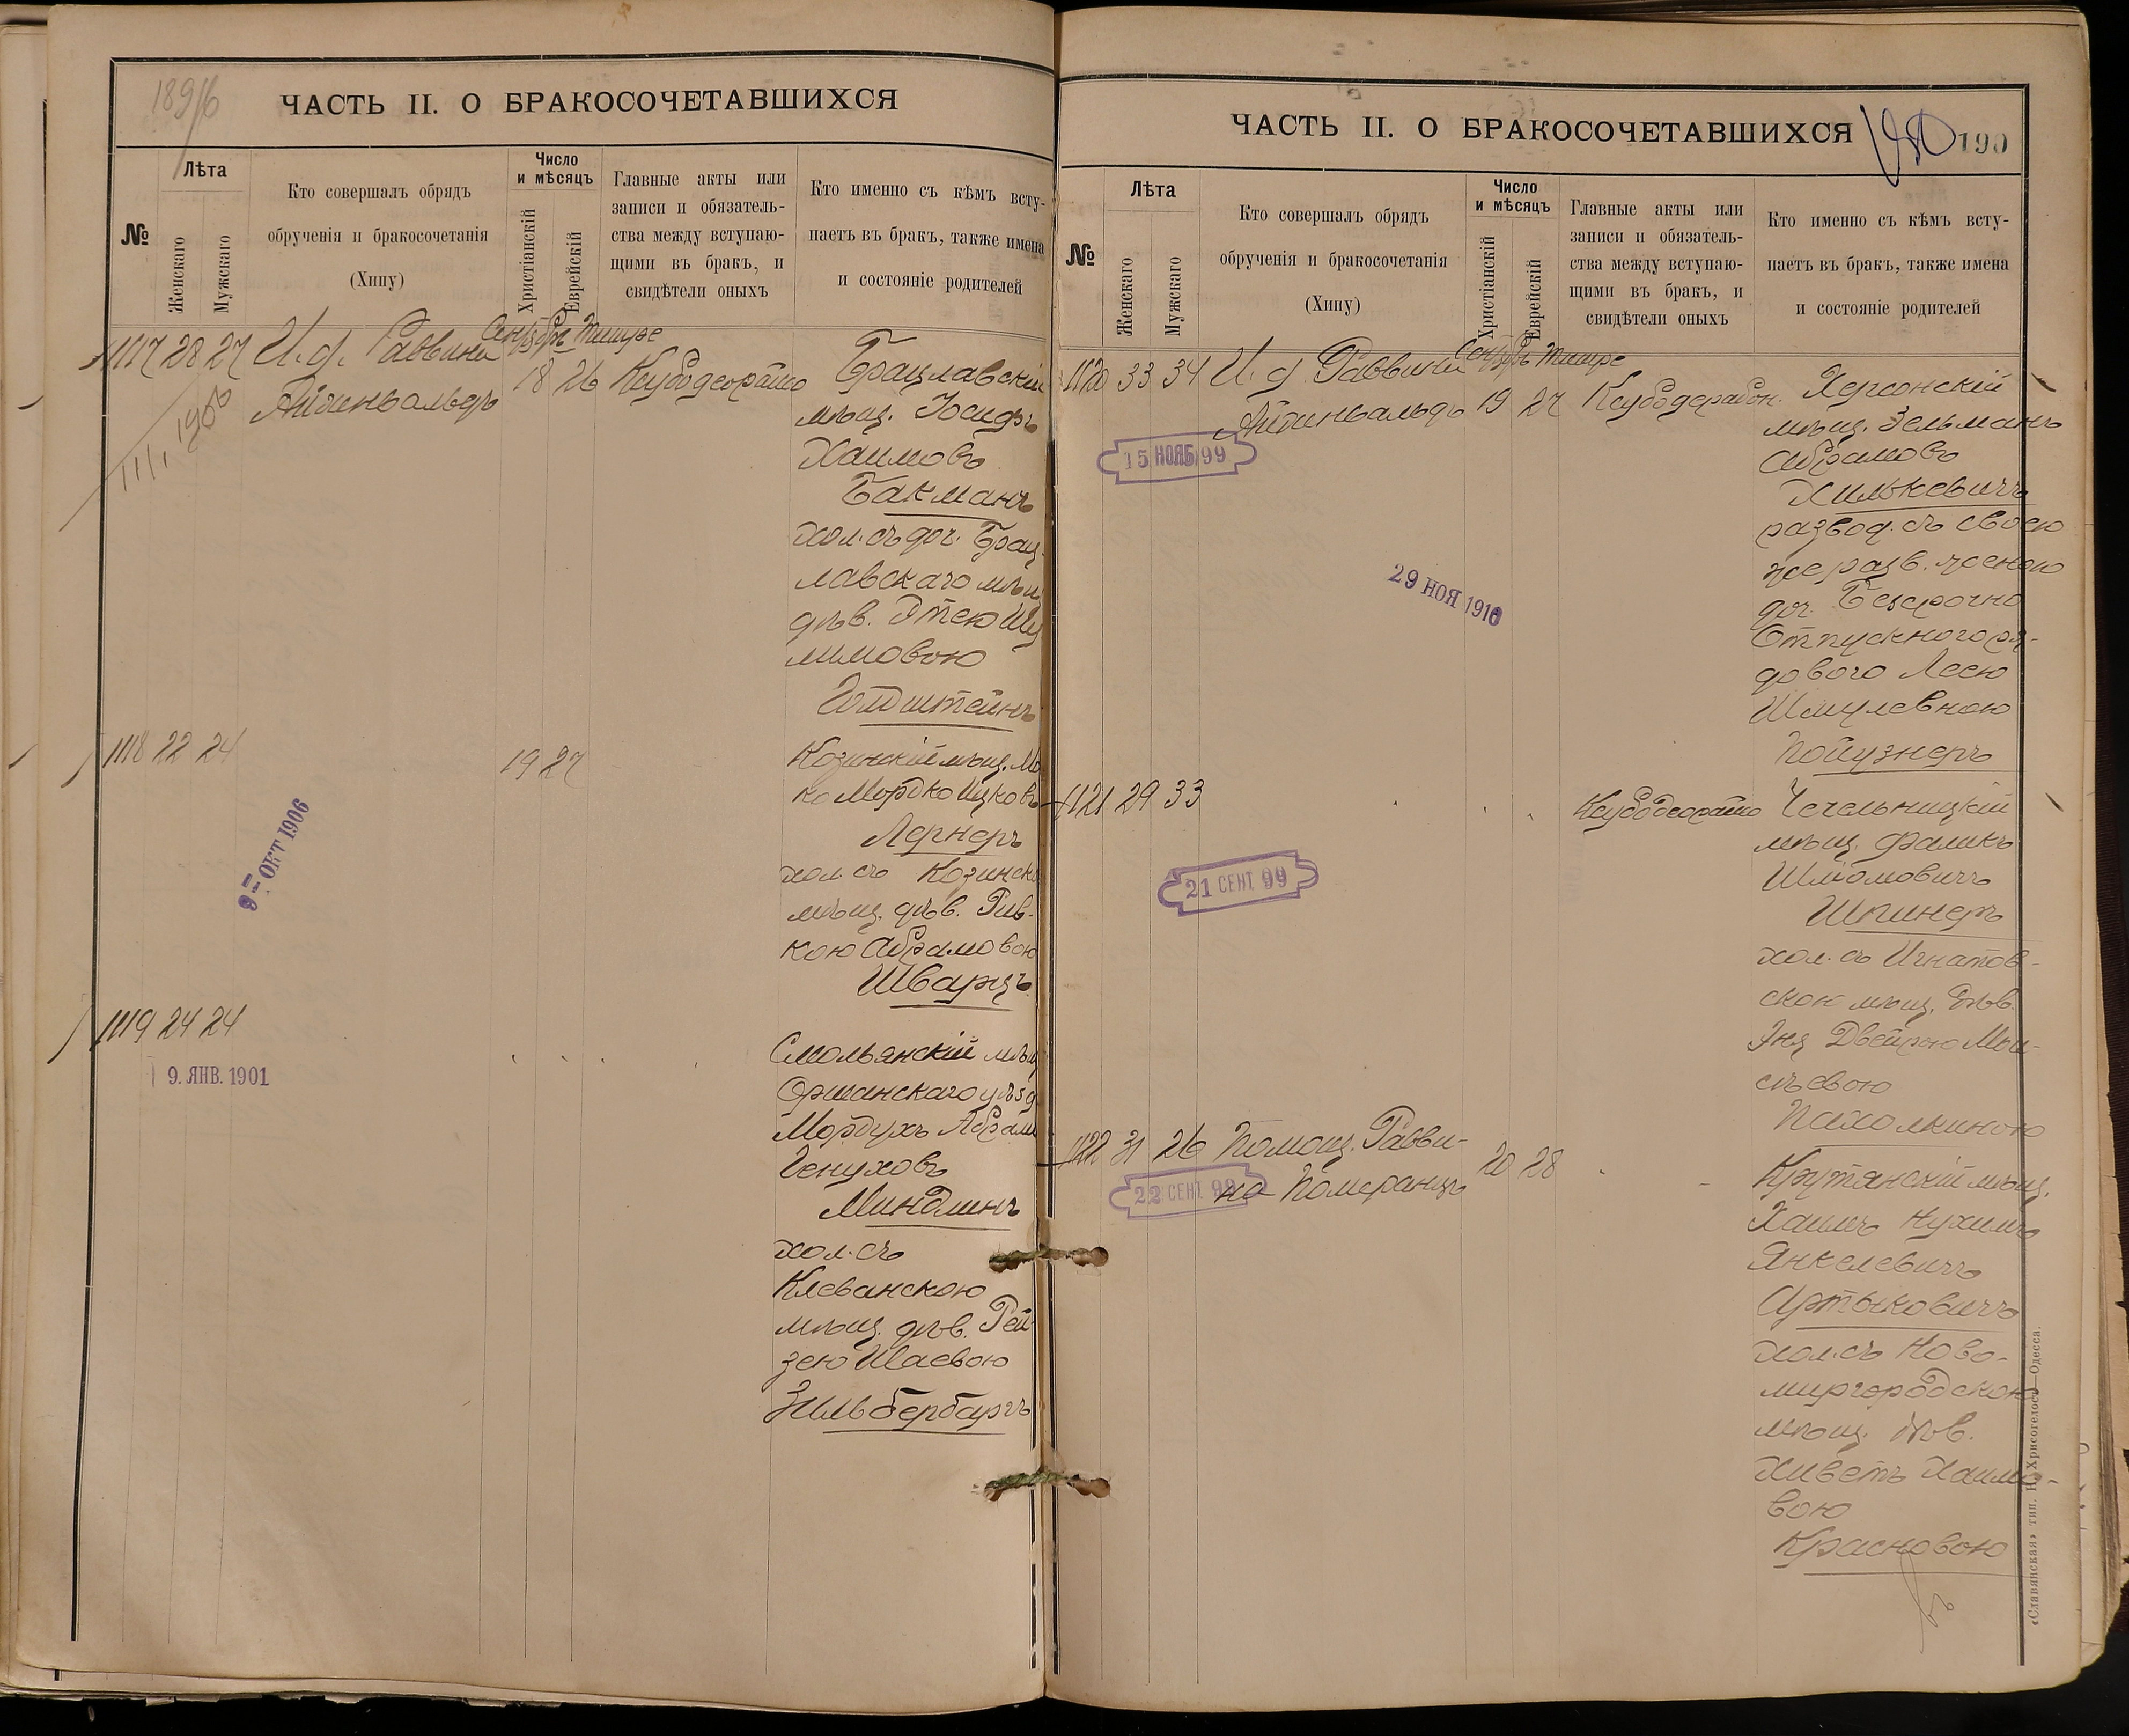 189
ЧАСТЬ II. О БРАКОСОЧЕТАВШИХСЯ
№
Лѣта
Женскаго
Мужскаго
Кто совершалъ обрядъ
обрученія и бракосочетанія
(Хипу)
Число
и мѣсяцъ
Христіанскій
Еврейскій
Главные акты или
записи и обязатель-
ства между вступаю-
щими въ бракъ, и
свидѣтели оныхъ
Кто именно съ кѣмъ всту-
паетъ въ бракъ, также имена
и состояніе родителей
Сентябрь Тишре
1117 28 27 И. д. Раввина
Айхенвальдъ
18 26
Браславскій
мѣщ. Іосифъ
Хаимовъ
Бакманъ
хол. съ доч. Брац
лавскаго мѣщ
дѣв. Этею Шу
лимовою
Голдштейнъ
1118 22 24
19 27
Козинскій мѣщ.
Мордко Ицков
Лернеръ
хол. съ Козинск
мѣщ. дѣв. Рив-
кою Абрамовою
Шварцъ
9 ОКТ 1906
1119 24 24
9. ЯНВ. 1901
Смольянскій мѣщ
Оршанскаго уѣзд
Мордухъ Абрам
Генуховъ
Миндлинъ
хол. съ
Клеванскою
мѣщ. дѣв. Рей-
зею Шаевою
Зильбербаргъ
ЧАСТЬ II. О БРАКОСОЧЕТАВШИХСЯ
190
№
Лѣта
Женскаго
Мужскаго
Кто совершалъ обрядъ
обрученія и бракосочетанія
(Хипу)
Число
и мѣсяцъ
Христіанскій
Еврейскій
Главные акты или
записи и обязатель-
ства между вступаю-
щими въ бракъ, и
свидѣтели оныхъ
Кто именно съ кѣмъ всту-
паетъ въ бракъ, также имена
и состояніе родителей
Сентябрь Тишре
1120 33 34 И. д. Раввина
Айхенвальдъ
19 27
15 НОЯБ 99
29 НОЯ 1910
Херсонскій
мѣщ. Зельманъ
Абрамовъ
Хилькевичъ
развод. съ своею
же разв. женою
доч. Безсрочно
Отпускного ря-
дового Леею
Шмулевною
Пойузнеръ
1121 29 33
21 СЕНТ. 99
Чечельницкій
мѣщ. Фаликъ
Шліомовичъ
Шпинеръ
хол. съ Игнатов-
скою мѣщ. дѣв.
Двейрою Мои-
сѣевою
Пахолкиною
1122 31 26 Помощ. Равви-
на Померанцъ
20 28
22 СЕНТ. 99
Крутянскій мѣщ.
Хаимъ Нухимъ
Янкелевичъ
Артыковичъ
хол. съ Ново-
миргородскою
мѣщ. дѣв.
Живетъ Хаимо-
вою
Красновою
«Славянская» тип. Н. Хрисогелосъ—Одесса.